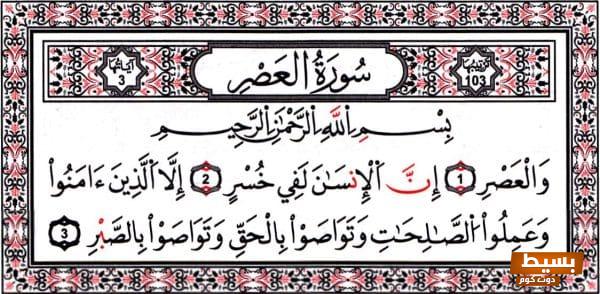 ترتيبها 103
سُورَةُ العَصْرِ
آياتها 3
بِسْمِ اللَّهِ الرَّحْمَٰنِ الرَّحِيمِ
وَالْعَصْرِ 1 إِنَّ الْإِنسَٰنَ لَفِي خُسْرٍ 2 إِلَّا الَّذِينَ ءَامَنُواْ
وَعَمِلُواْ الصَّٰلِحَٰتِ وَتَوَاصَوْاْ بِالْحَقِّ وَتَوَاصَوْاْ بِالصَّبْرِ 3
بسيط
دوت كوم